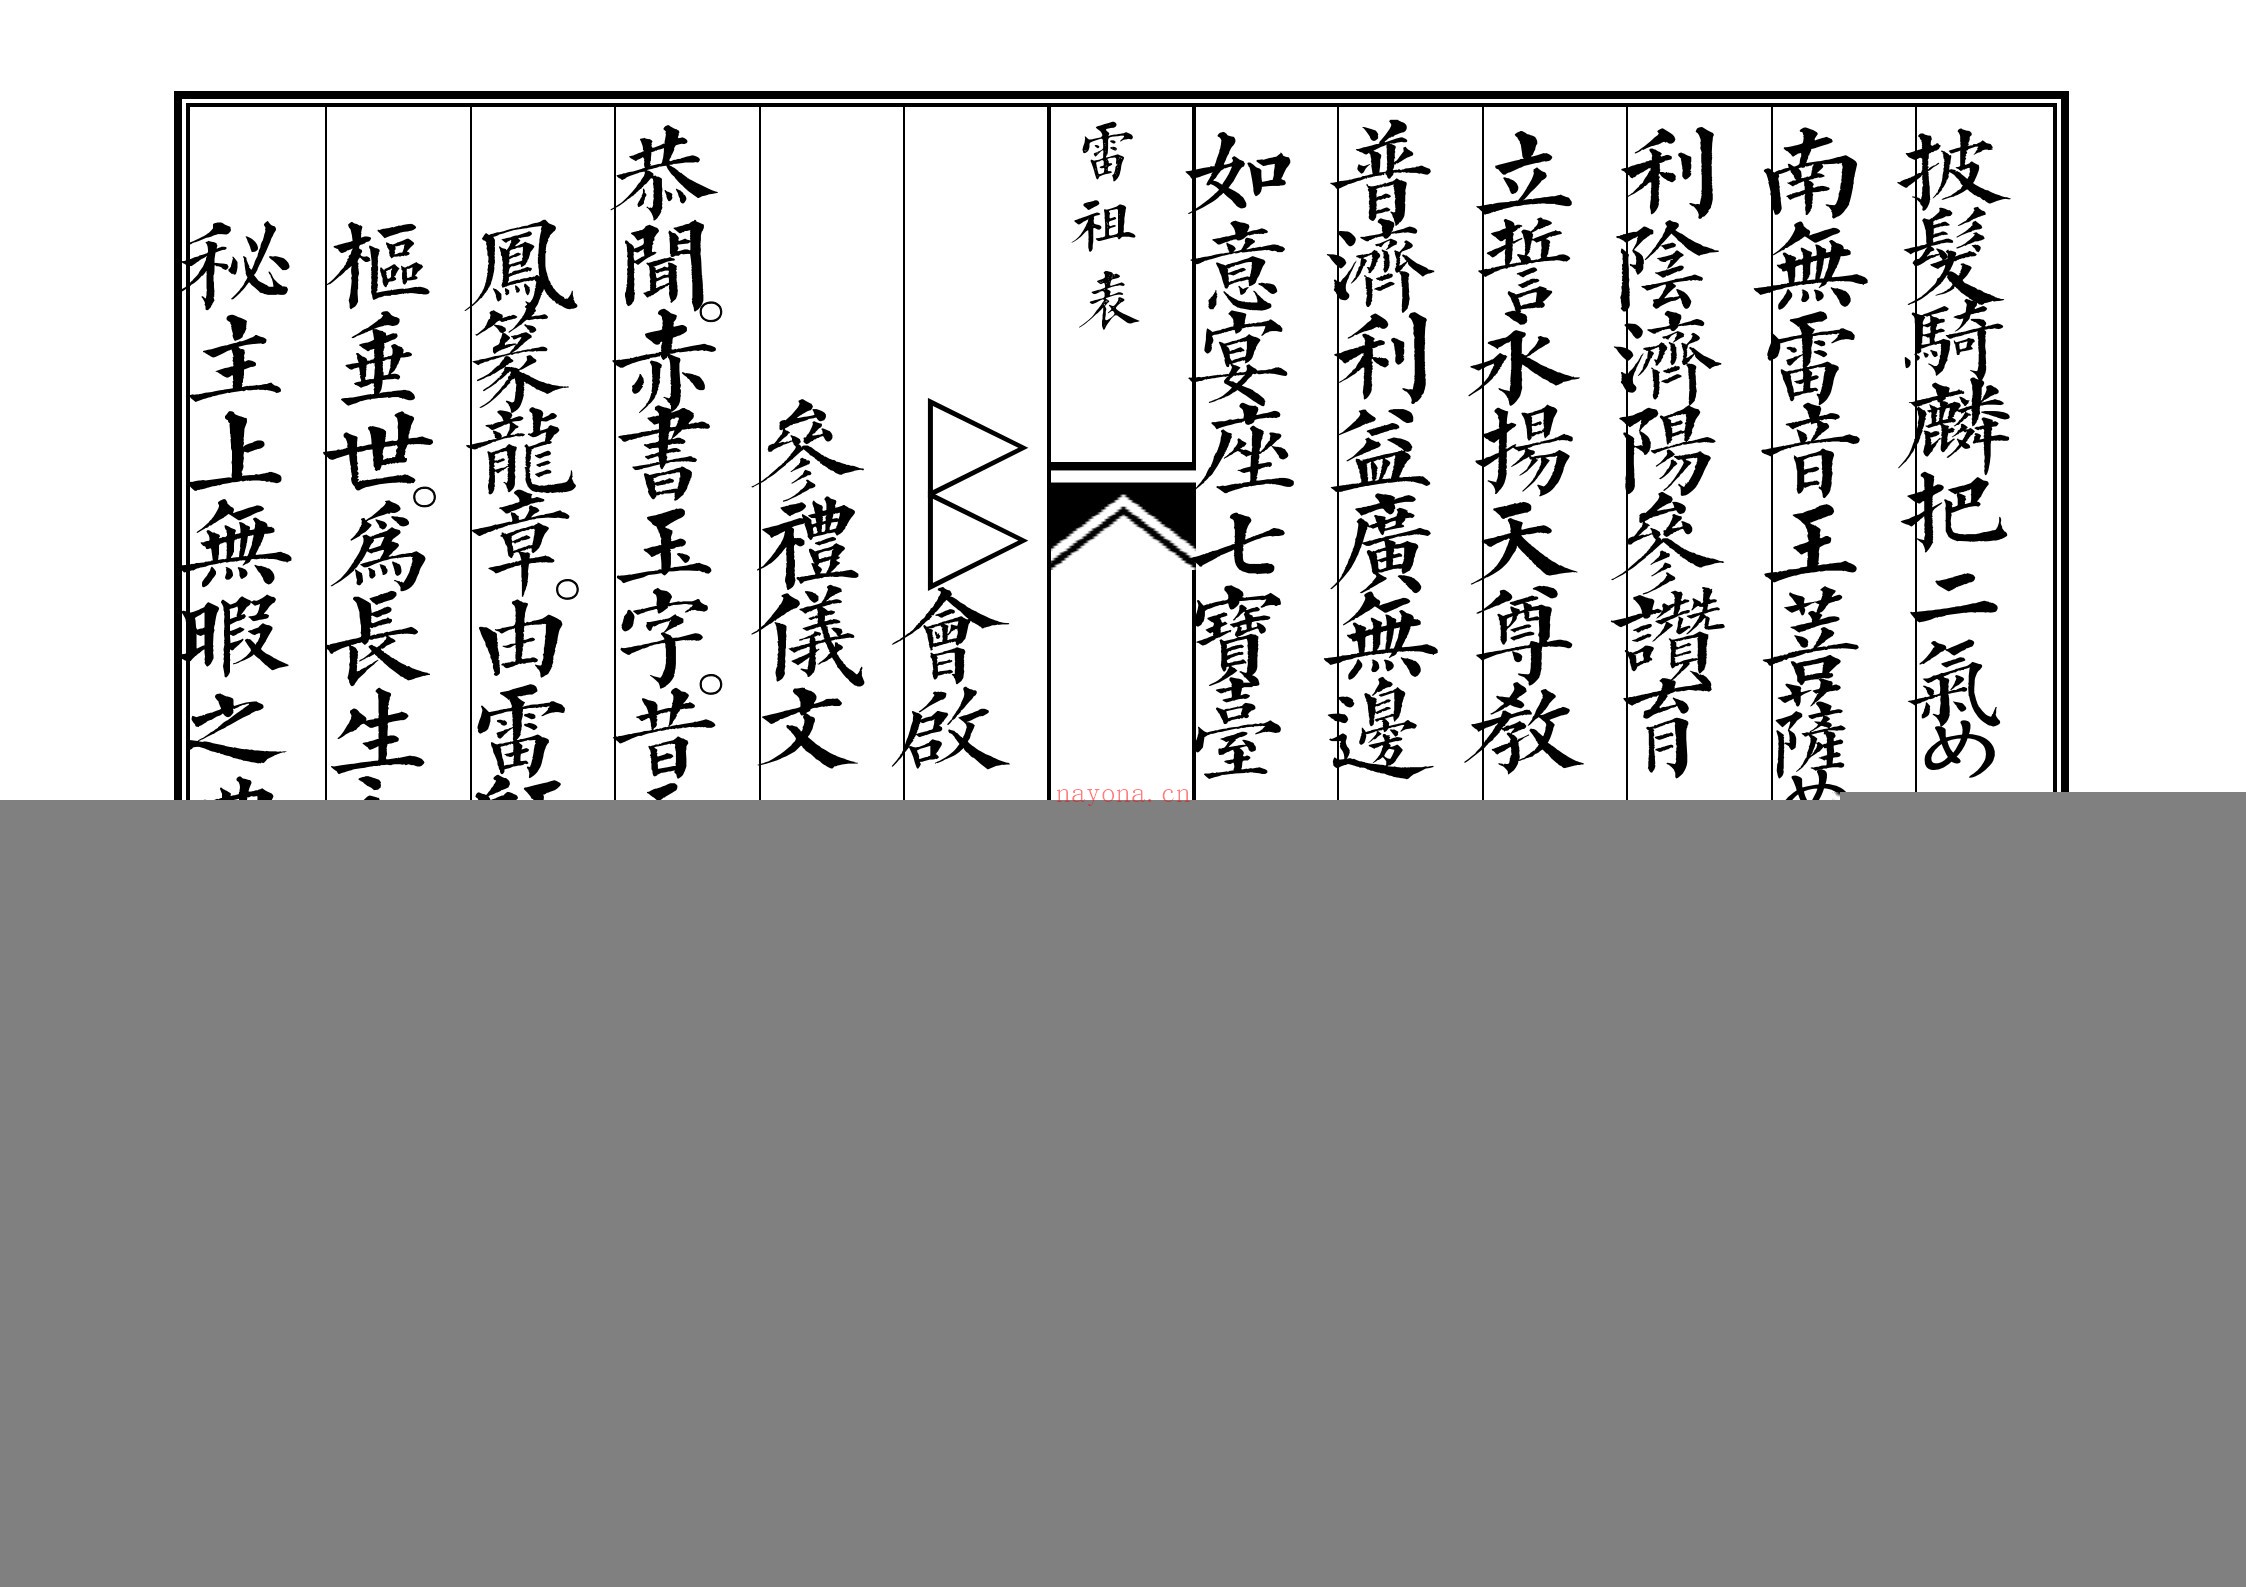 披髮騎麟把二氣め
南無雷音王菩薩め
利陰濟陽參讚育
立誓永揚天尊教
普濟利益廣無邊
如意宴座七寶臺
雷祖表
會啟
參禮儀文
恭聞。赤書玉字。昔
鳳篆龍章。由雷
樞垂世。為長生
秘主上無暇之
nayona.cn